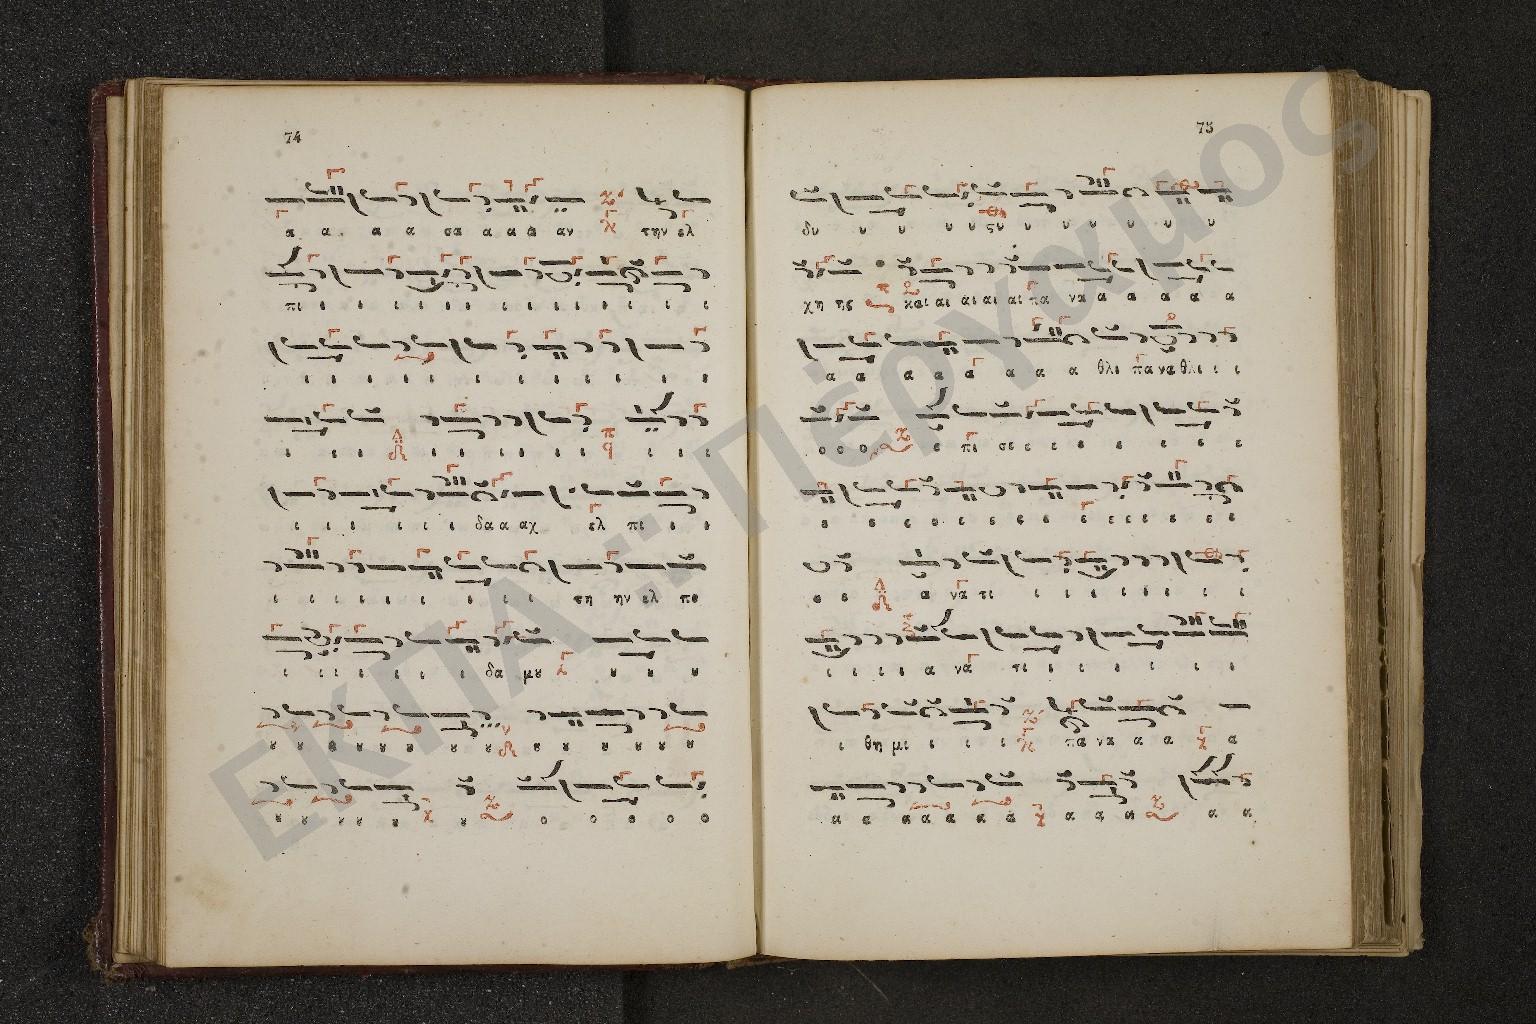 74
α α α α σα α α α αν την ελ
πι ι ι ι ι ι ι ι ι ι ι ι ι ι ι
ι ι ι ι ι ι ι ι ι ι ι ι ι
ι ι ι ι ι ι ι ι ι ι ι ι
ι ι ι ι ι ι δα α αχ ελ πι ι ι
ι ι ι ι ι ι ι ι ι ι τη ην ελ πι
ι ι ι ι ι ι ι δα μȣ ȣ ȣ ȣ
ȣ ȣ ȣ ȣ ȣ ȣ ȣ ȣ ȣ ȣ ȣ ȣ ȣ
ȣ ȣ ȣ ȣ ȣ ȣ ȣ ο ο ο ο ο
75
δυ υ υ υ υ ςυ υ υ υ υ υ υ υ
χη ης και αι αι αι αι πα να α α α α α α
α α α α α α α α θλι πα να θλι ι ι
ο ο ο ε πι σε ε ε ε ε ε ε ε
ε ε ε ε ε ε ε ε ε ε ε ε ε ε ε
ε ε α να τι ι ι ι ι ι ι ι ι
ι ι ι ι α να τι ι ι ι ι ι ι ι
ι θη μι ι ι ι πα να α α α
α α α α α α α α α α α α
ΕΚΠΑ :: Πέργαμος